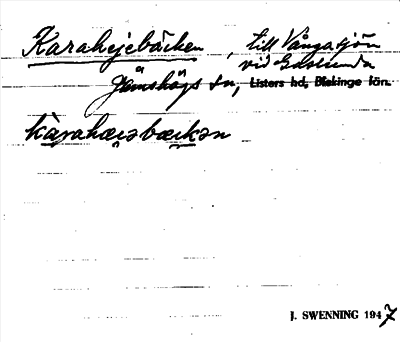 Karahejebäcken, till Vångasjön
vid Gaslunda
Jämshögs sn, Listers hd, Blekinge län.
kàrahæiəbækən
J. SWENNING 1947